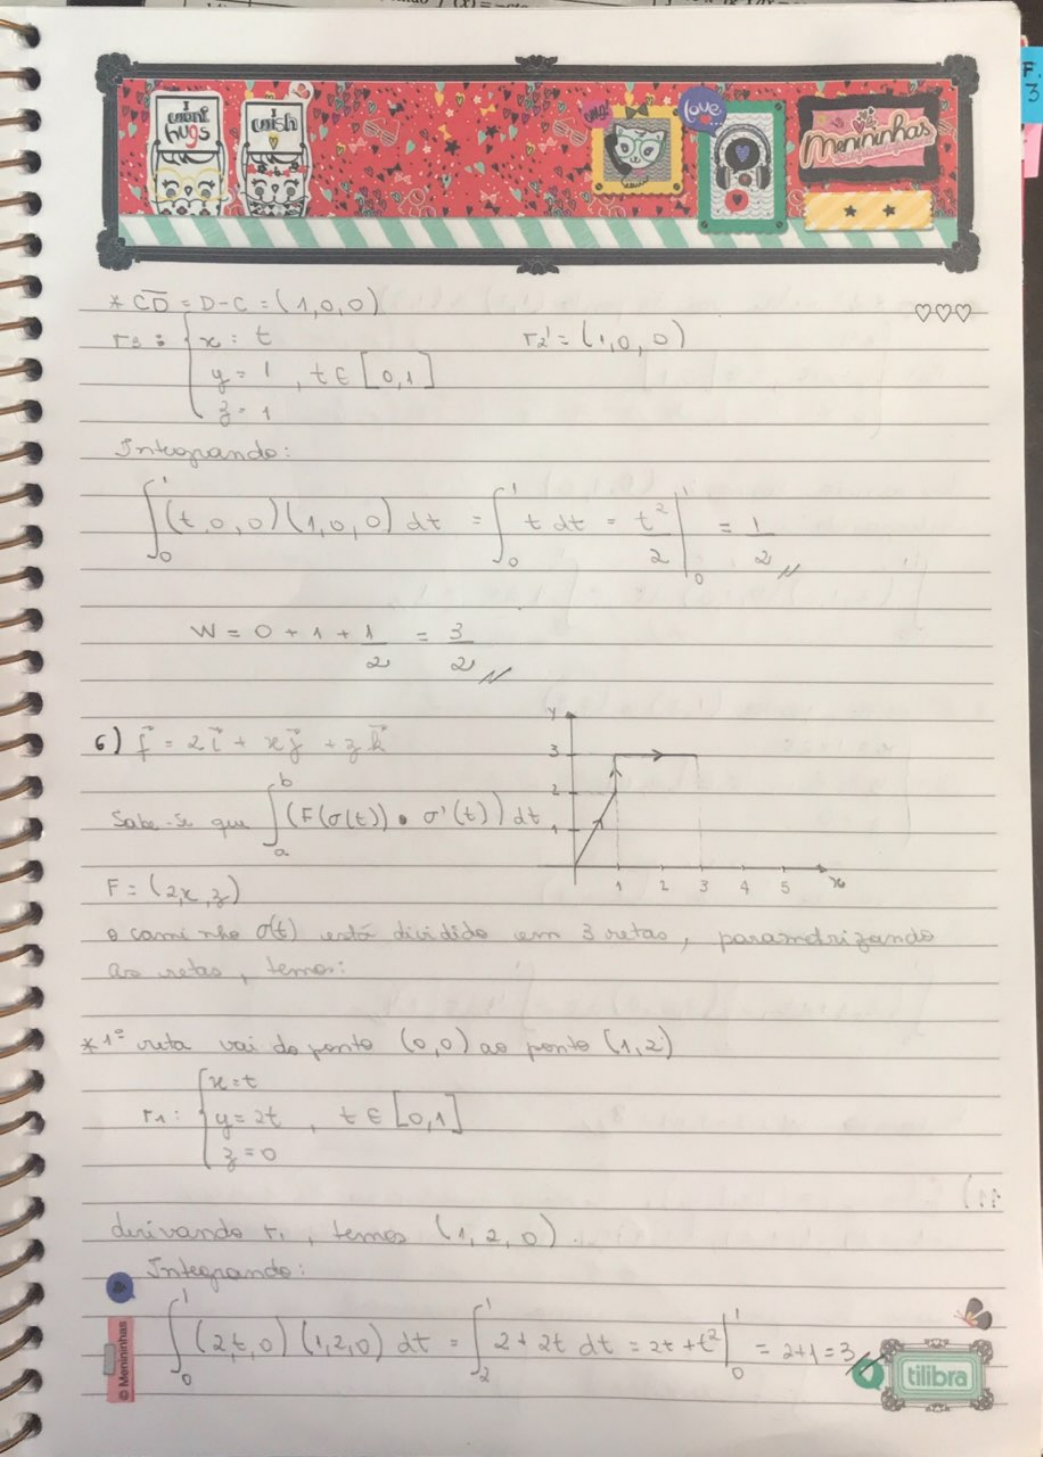 F.
3
I want hugs
I wish
omg!
love
Menininhas
* CD = D-C = (1,0,0)
r3 : { x = t r2' = (1,0,0)
y = 1 , t ∈ [0,1]
z = 1
Integrando:
∫₀¹ (t,0,0)(1,0,0) dt = ∫₀¹ t dt = t²/2 |₀¹ = 1/2 //
W = 0 + 1 + 1/2 = 3/2 //
6) f = 2i + xj + zk
Sabe-se que ∫ₐᵇ (F(σ(t)) • σ'(t)) dt
y
3
2
1
1 2 3 4 5 x
F = (2,x,z)
o caminho σ(t) está dividido em 3 retas, parametrizando
as retas, temos:
* 1º reta vai do ponto (0,0) ao ponto (1,2)
r1: { x = t
y = 2t , t ∈ [0,1]
z = 0
derivando r1, temos (1,2,0).
Integrando:
∫₀¹ (2,t,0) (1,2,0) dt = ∫₂¹ 2 + 2t dt = 2t + t² |₀¹ = 2+1 = 3 //
© Menininhas
tilibra